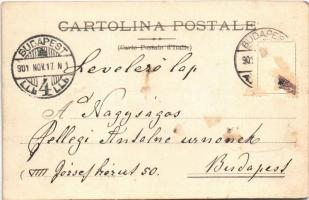 CARTOLINA POSTALE
(Carte Postale d'Italie)
BUDAPEST
901 NOV.17 N 1
4
BUDAPEST
901
Levelező lap
A Nagyságos
Fellegi Antalné urnőnek
VIII József körút 50. Budapest